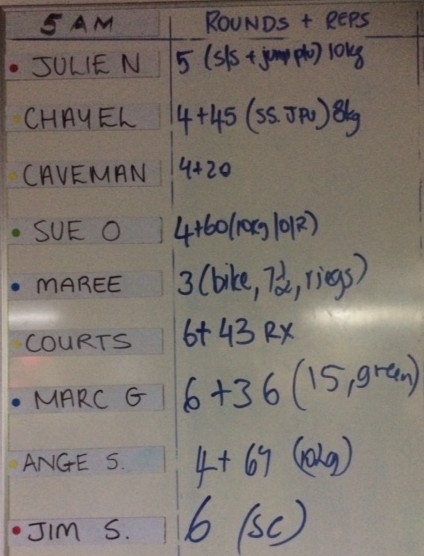 5 AM ROUNDS + REPS
JULIE N 5 (s/s + jump plu) 10kg
CHAYEL 4+45 (SS. JPU) 8kg
CAVEMAN 4+20
SUE O 4+60 (10kg
MAREE 3 (bike, 7½, rings)
COURTS 6+ 43 RX
MARC G 6+36 (15, green)
ANGE S. 4+ 67 (10kg)
JIM S. 6 (SC)